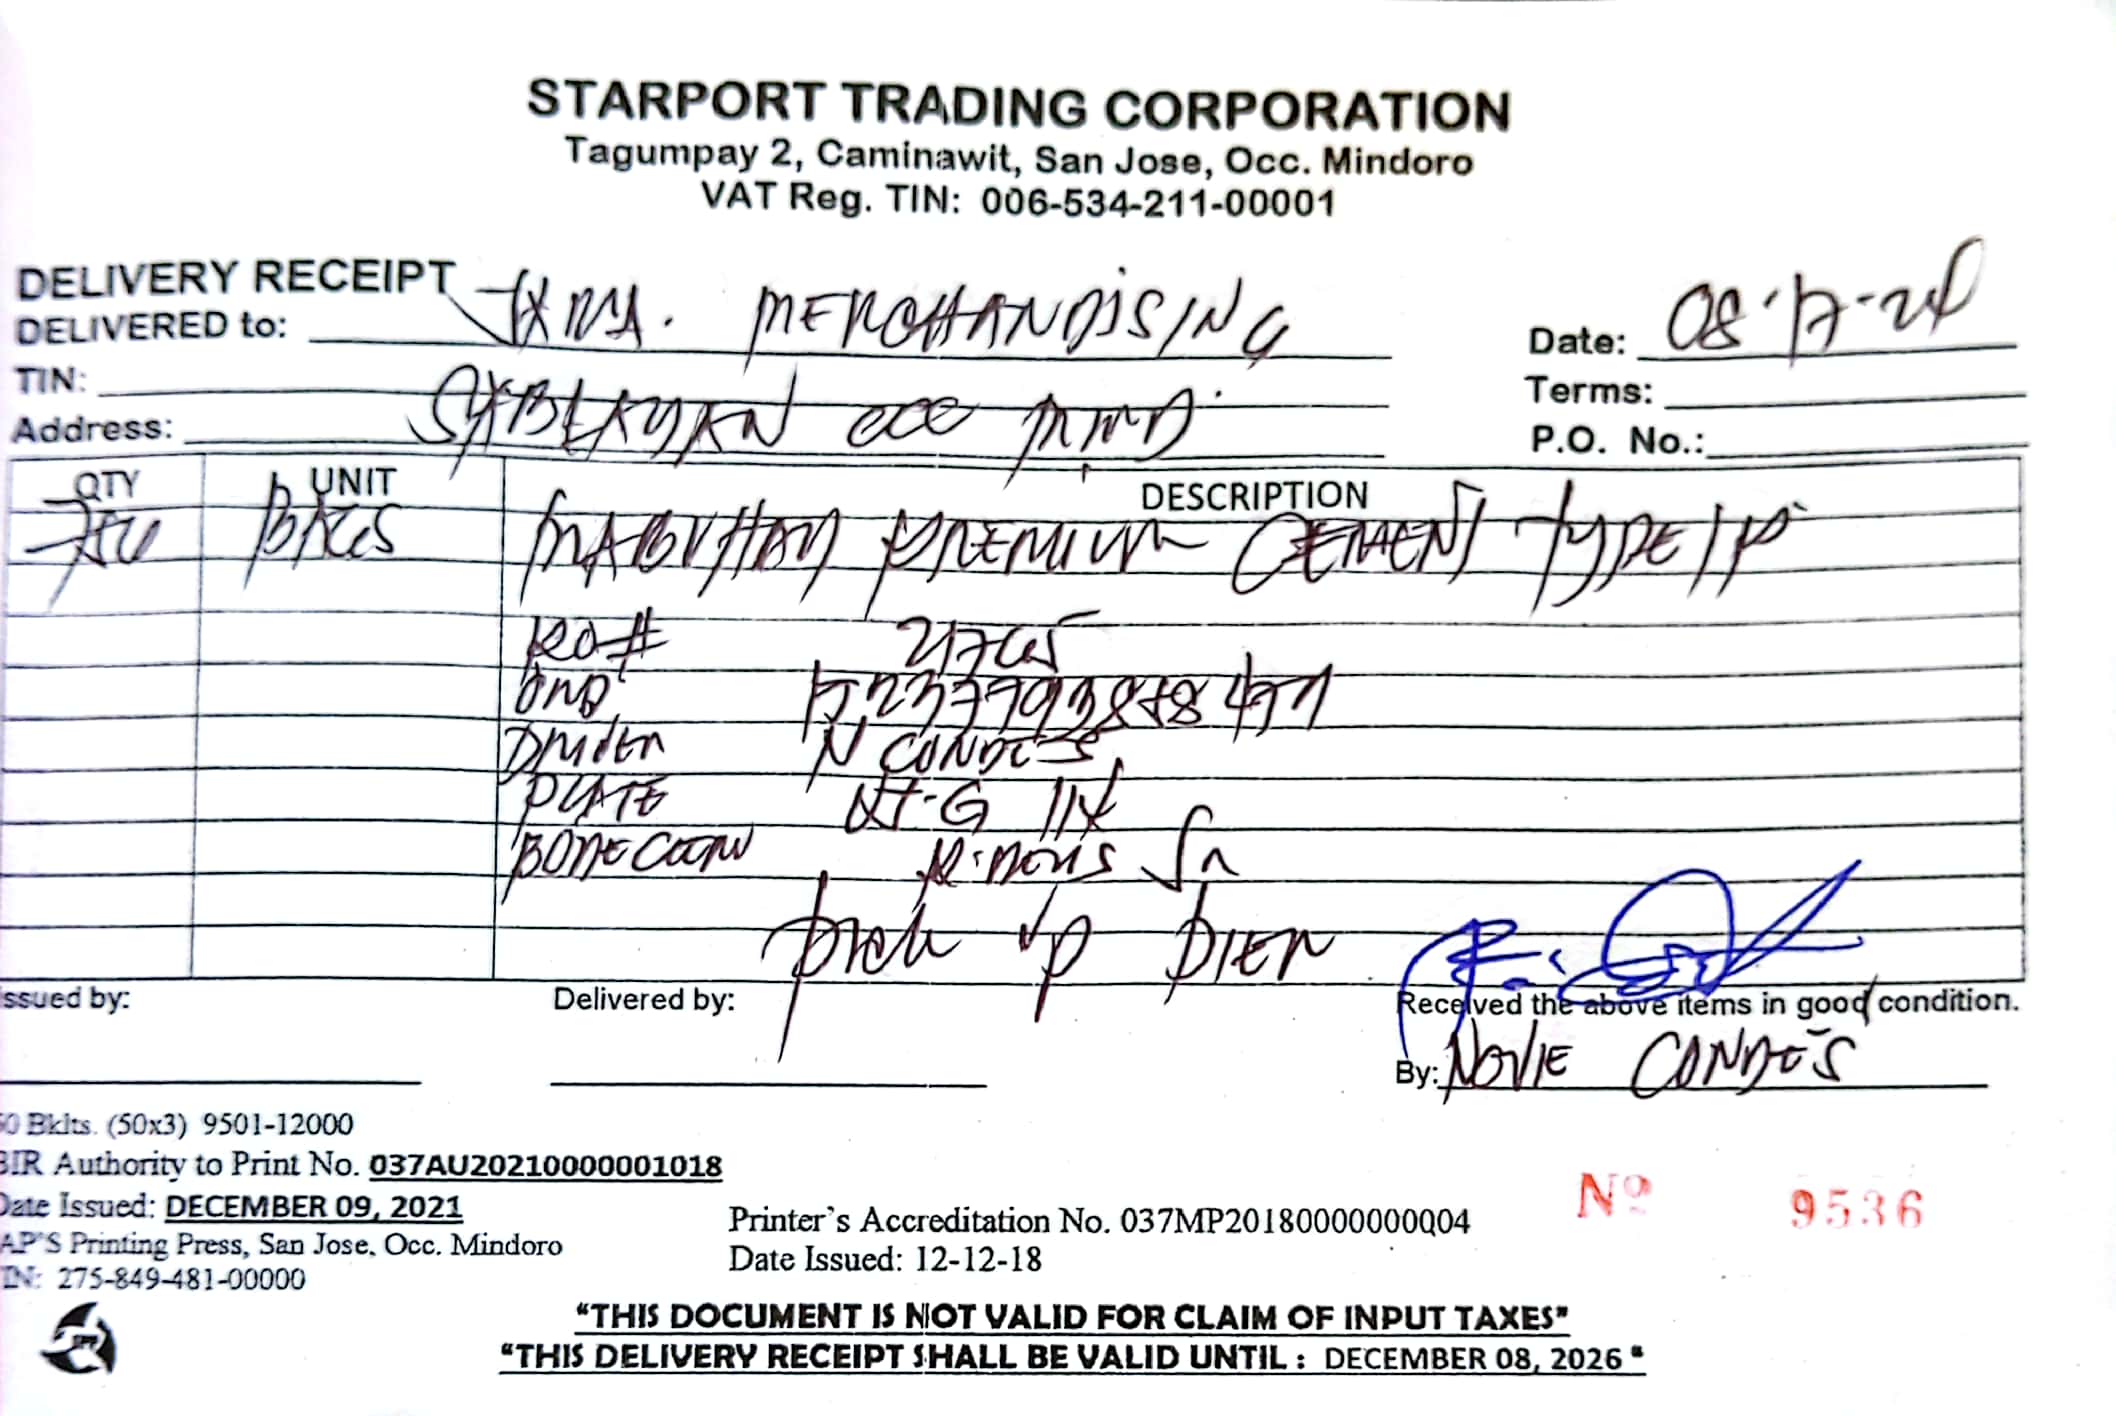 STARPORT TRADING CORPORATION
Tagumpay 2, Caminawit, San Jose, Occ. Mindoro
VAT Reg. TIN: 006-534-211-00001
DELIVERY RECEIPT
DELIVERED to: MERCHANDISING
Date: 08-17-24
TIN:
Terms:
Address: SABLAYAN OCC MIND.
P.O. No.:
QTY UNIT DESCRIPTION
750 BAGS MABUHAY PREMIUM CEMENT TYPE 1P
RO# 21765
DRIVER N CONDES
PLATE
PICK UP PIER
ssued by:
Delivered by:
Received the above items in good condition.
By: NOVIE CONDES
0 Bklts. (50x3) 9501-12000
BIR Authority to Print No. 037AU20210000001018
Date Issued: DECEMBER 09, 2021
AP'S Printing Press, San Jose, Occ. Mindoro
IN: 275-849-481-00000
Printer's Accreditation No. 037MP20180000000004
Date Issued: 12-12-18
Nº 9536
"THIS DOCUMENT IS NOT VALID FOR CLAIM OF INPUT TAXES"
"THIS DELIVERY RECEIPT SHALL BE VALID UNTIL : DECEMBER 08, 2026 "